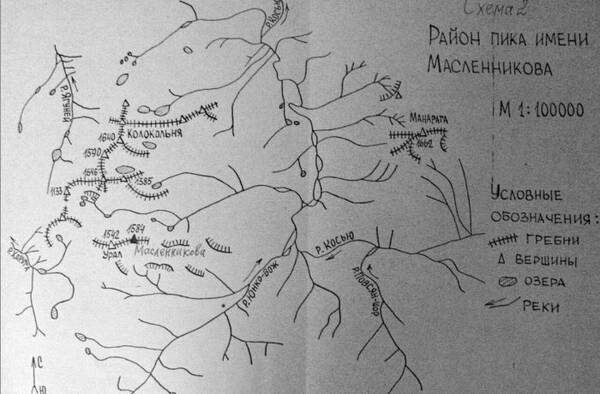 Схема 2
Район пика имени
Масленникова
М 1:100000
р. Косью
Манарага
1662
Колокольня
1640
1570
1646
1585
1133
1542
1584
Урал
Масленникова
р. Косью
р. Юнко-вож
Условные
обозначения:
гребни
вершины
озера
реки
С
Ю